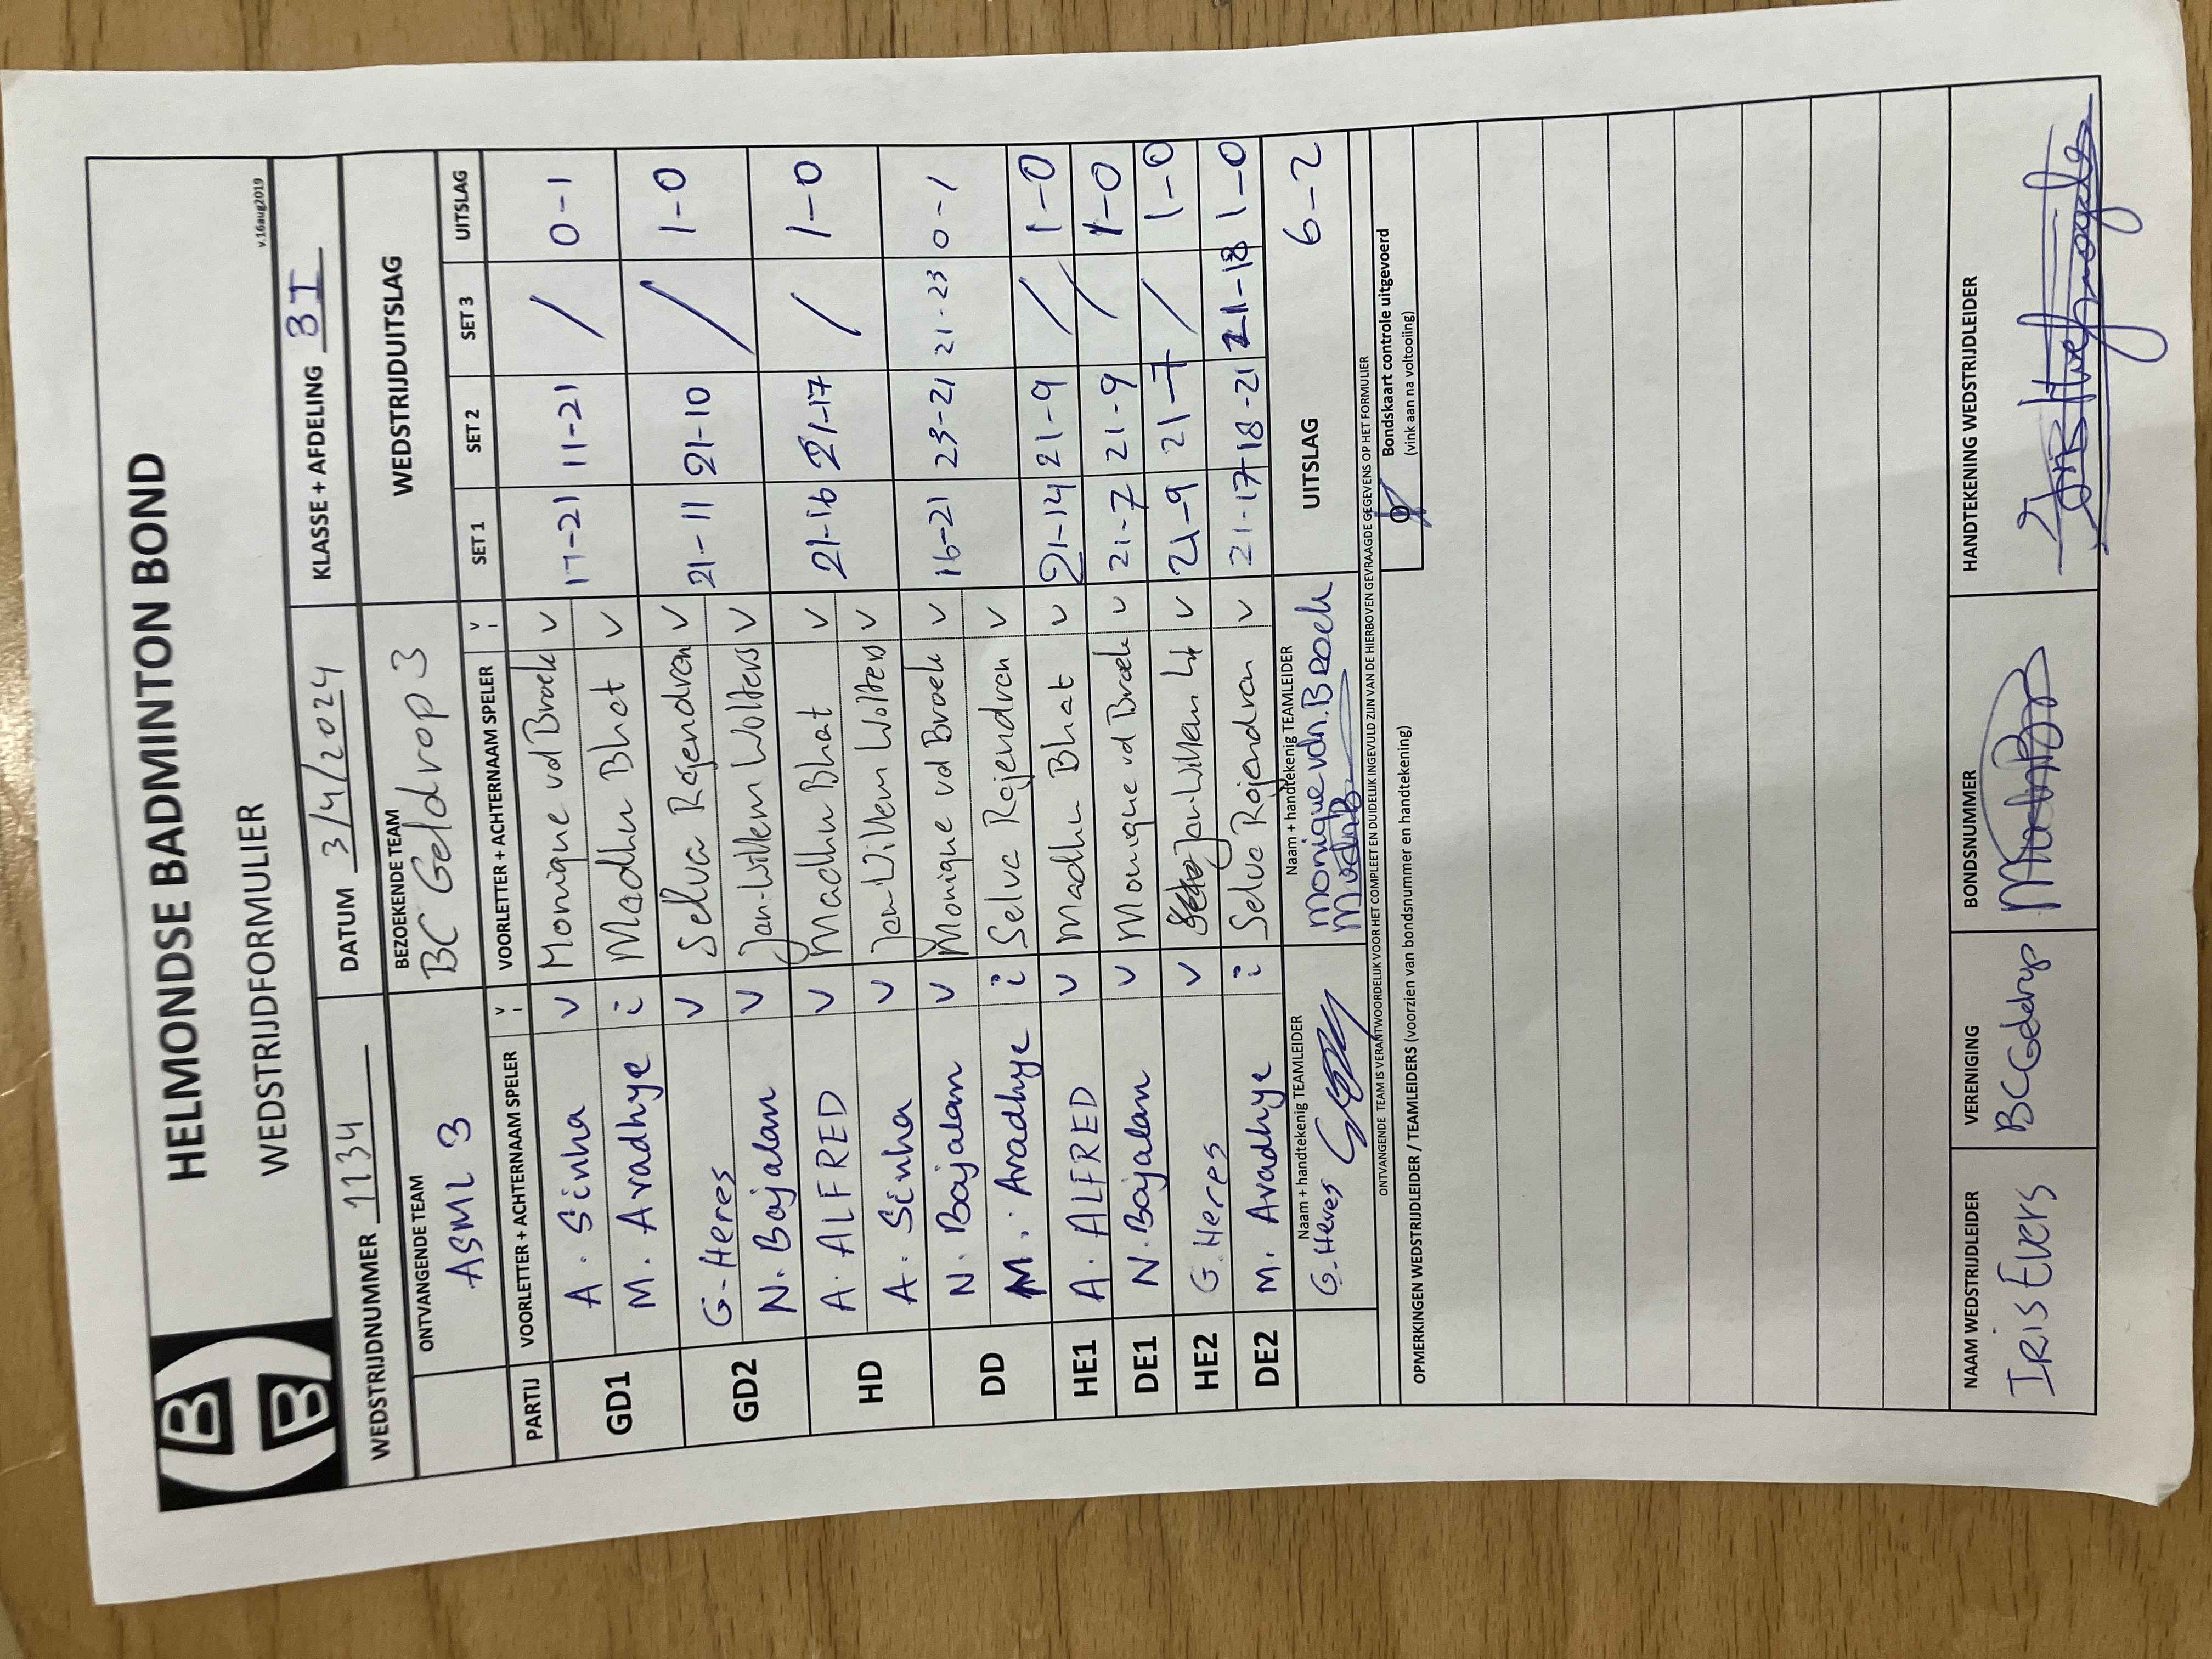 HELMONDSE BADMINTON BOND
WEDSTRIJDFORMULIER
v.16aug2019
B
B
WEDSTRIJDNUMMER 1134 DATUM 3/4/2024 KLASSE + AFDELING 3I
ONTVANGENDE TEAM BEZOEKENDE TEAM WEDSTRIJDUITSLAG
ASML 3 BC Geldrop 3
PARTIJ VOORLETTER + ACHTERNAAM SPELER V I VOORLETTER + ACHTERNAAM SPELER V I SET 1 SET 2 SET 3 UITSLAG
GD1 A. Sinha V Monique vd Broek V 17-21 11-21 / 0-1
M. Avadhye i Madhu Bhat V
GD2 G. Heres V Selva Rajendran V 21-11 21-10 / 1-0
N. Bajalan V Jan-Willem Wolters V
HD A. ALFRED V Madhu Bhat V 21-16 21-17 / 1-0
A. Sinha V Jan-Willem Wolters V
DD N. Bajalan V Monique vd Broek V 16-21 23-21 21-23 0-1
M. Avadhye i Selva Rajendran V
HE1 A. ALFRED V Madhu Bhat V 21-14 21-9 / 1-0
DE1 N. Bajalan V Monique vd Broek V 21-7 21-9 / 1-0
HE2 G. Heres V Jan-Willem V 21-9 21-7 / 1-0
DE2 M. Avadhye i Selva Rajendran V 21-17 18-21 21-18 1-0
Naam + handtekenig TEAMLEIDER Naam + handtekenig TEAMLEIDER UITSLAG 6-2
G. Heres Monique vdn. Broek
ONTVANGENDE TEAM IS VERANTWOORDELIJK VOOR HET COMPLEET EN DUIDELIJK INGEVULD ZIJN VAN DE HIERBOVEN GEVRAAGDE GEGEVENS OP HET FORMULIER
Bondskaart controle uitgevoerd
(vink aan na voltooiing)
OPMERKINGEN WEDSTRIJDLEIDER / TEAMLEIDERS (voorzien van bondsnummer en handtekening)
NAAM WEDSTRIJDLEIDER VERENIGING BONDSNUMMER HANDTEKENING WEDSTRIJDLEIDER
IRIS Evers BCGeldrop